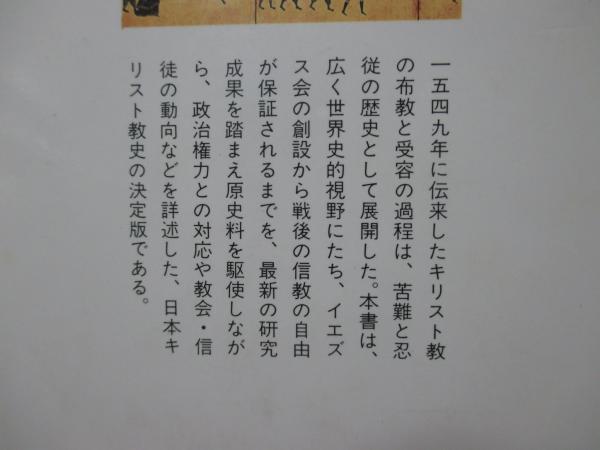 一五四九年に伝来したキリスト教
の布教と受容の過程は、苦難と忍
従の歴史として展開した。本書は、
広く世界史的視野にたち、イエズ
ス会の創設から戦後の信教の自由
が保証されるまでを、最新の研究
成果を踏まえ原史料を駆使しなが
ら、政治権力との対応や教会・信
徒の動向などを詳述した、日本キ
リスト教史の決定版である。